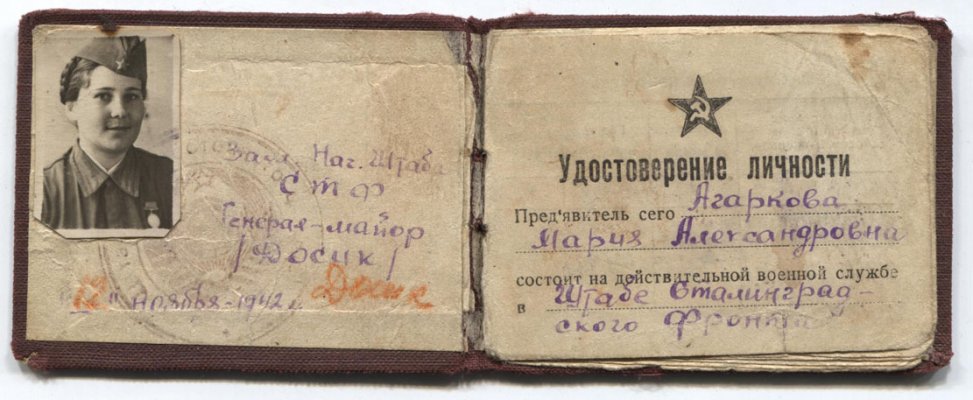 Зам. Нач. Штаба
СТФ
Генерал-майор
/Досик/
"12" ноября-1942 г.
Досик
Удостоверение личности
Пред'явитель сего Агаркова
Мария Александровна
состоит на действительной военной службе
в Штабе Сталинград-
ского Фронта